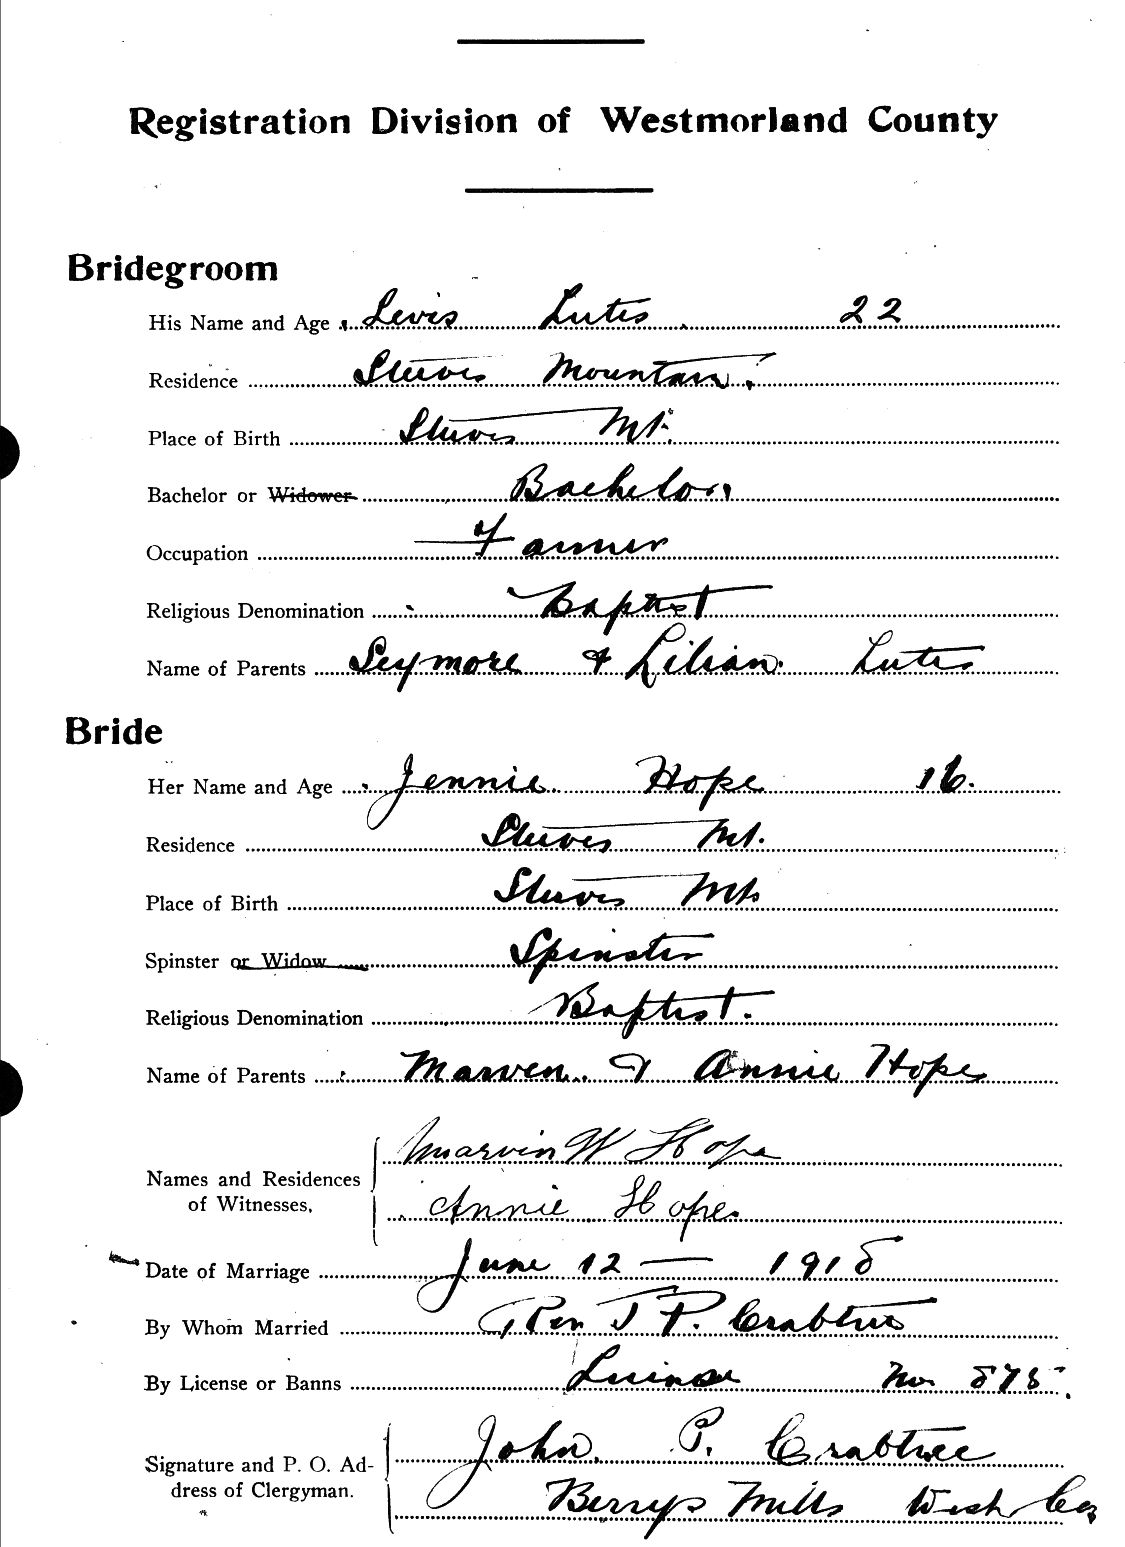 Registration Division of Westmorland County
Bridegroom
His Name and Age Levis Lutes 22
Residence Steeves Mountain
Place of Birth Steeves Mt.
Bachelor or Widower Bachelor
Occupation Farmer
Religious Denomination Baptist
Name of Parents Seymore & Lilian Lutes
Bride
Her Name and Age Jennie Hope 16.
Residence Steeves Mt.
Place of Birth Steeves Mt.
Spinster or Widow Spinster
Religious Denomination Baptist.
Name of Parents Marven & Annie Hope
Names and Residences of Witnesses, Marvin W Hope
Annie Hope
Date of Marriage June 12 — 1918
By Whom Married Rev J P. Crabtree
By License or Banns License No 878
Signature and P. O. Address of Clergyman. John P. Crabtree
Berrys Mills West Co